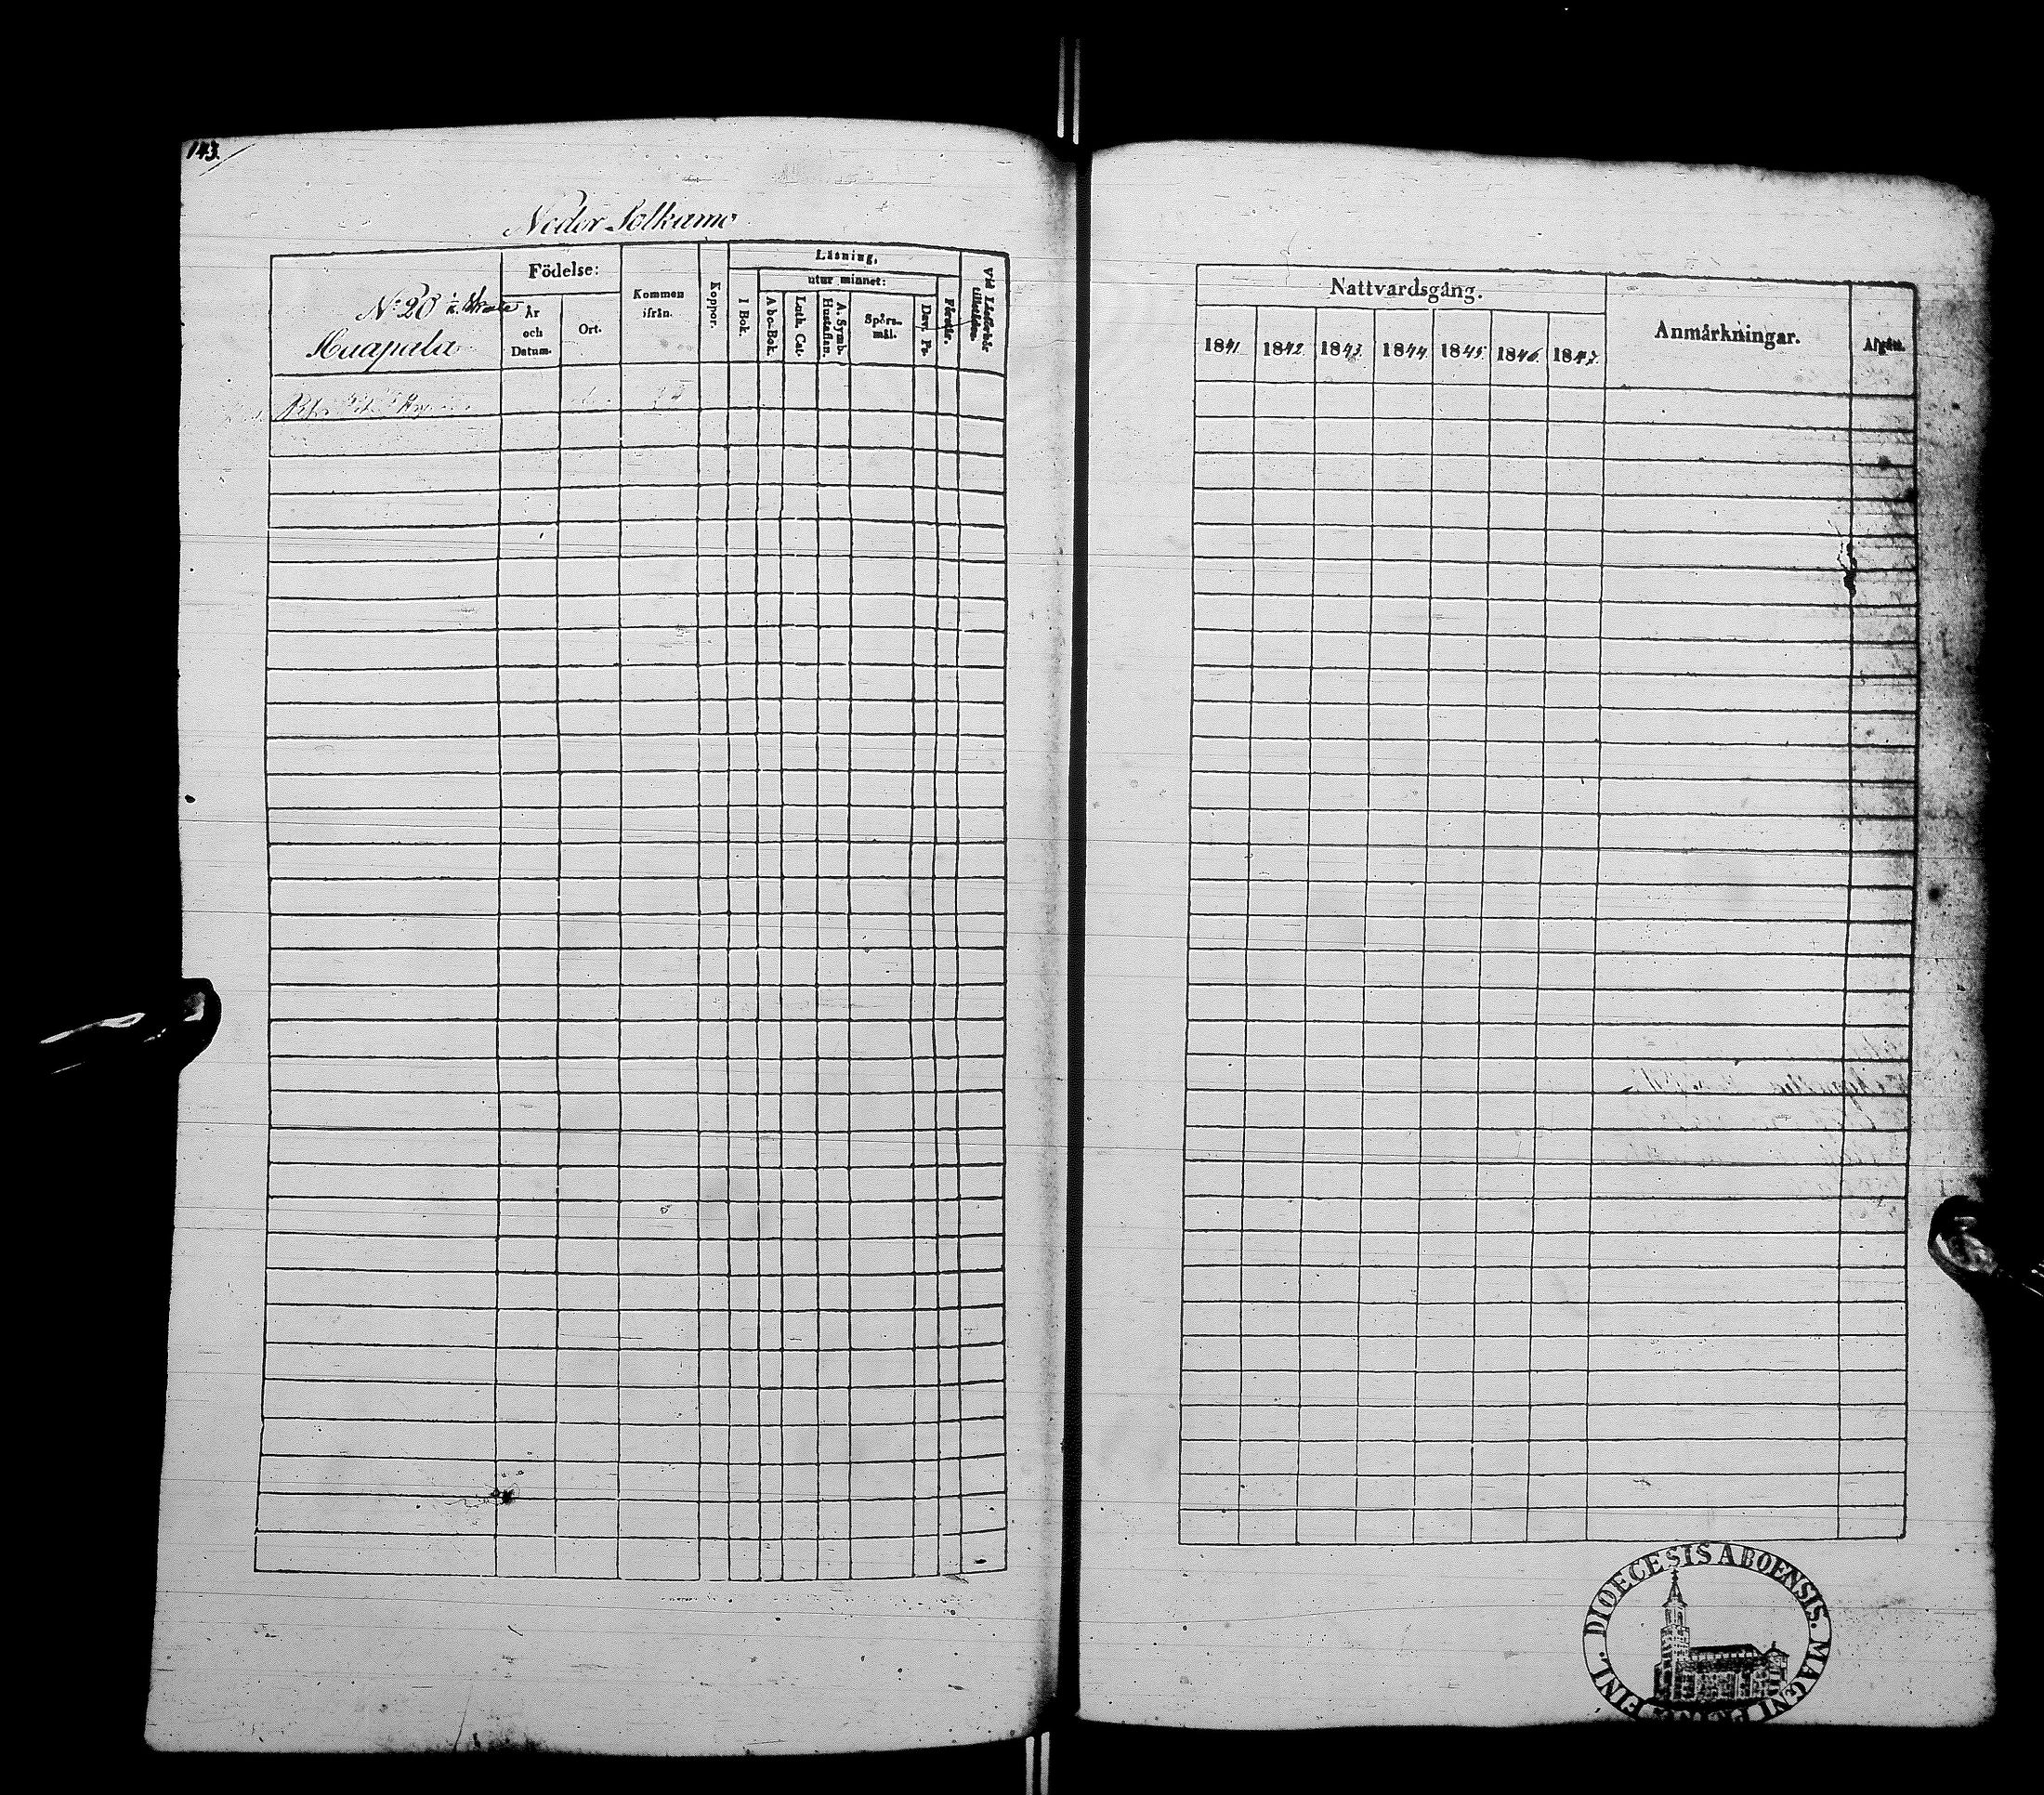 143.
Neder Solkamo
No 20
Haapala
Födelse:
År och Datum.
Ort.
Kommen ifrån.
Koppor.
Läsning,
I Bok.
utur minnet:
Abc-Bok.
Luth. Cat.
A. Symb. Hustaflan.
Spörs-mål.
Dav. Ps.
Förstår.
Vid Läseförhör tillstädes.
Nattvardsgång.
1841.
1842.
1843.
1844.
1845.
1846.
1847.
Anmärkningar.
Afgått.
DIOECESIS ABOENSIS. MAGNI PRINC. FINL.